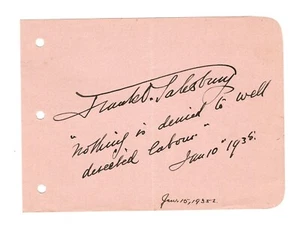 Frank O. Salisbury
"nothing is denied to well
directed labour."
Jan 10" 1935.
Jan. 15, 1935